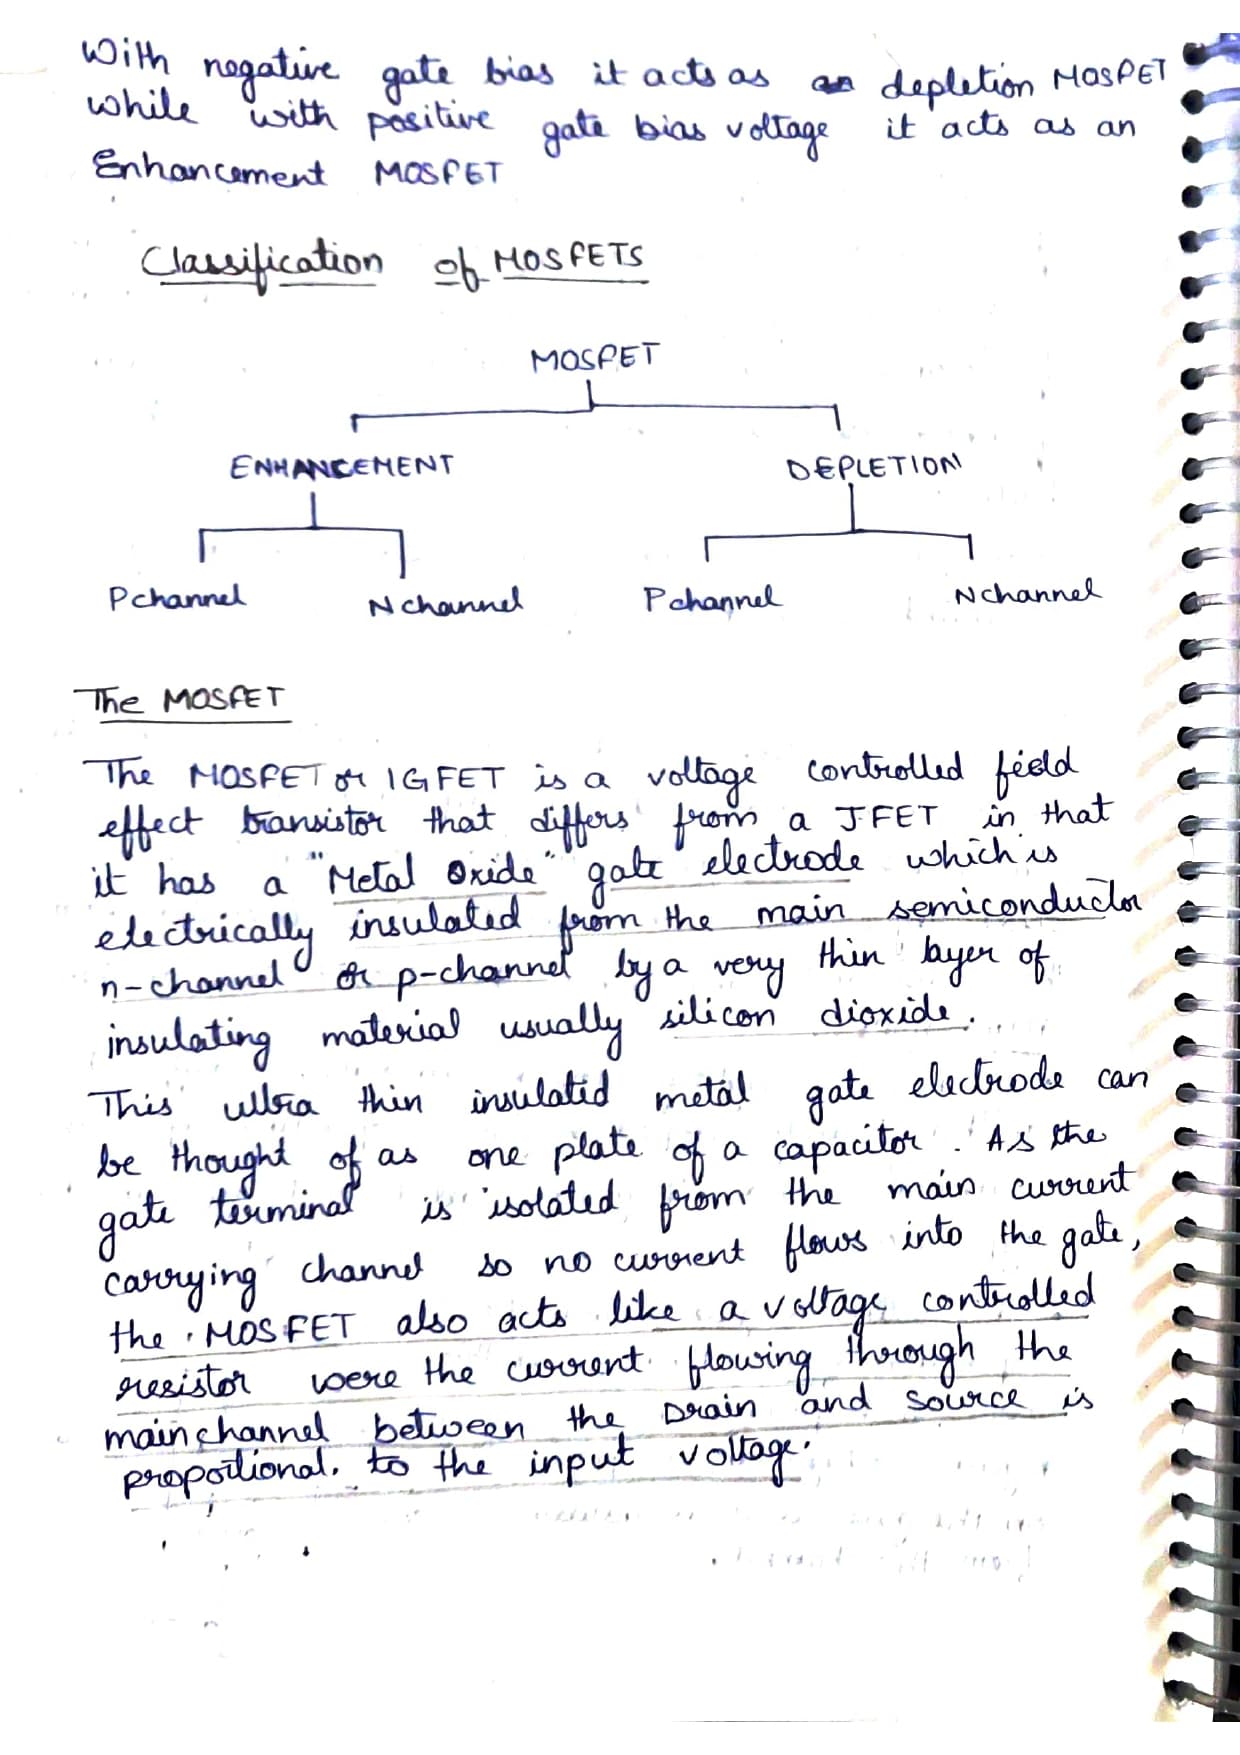 With negative gate bias it acts as depletion MOSFET
while with positive gate bias voltage it acts as an
Enhancement MOSFET
Classification of MOSFETS
MOSFET
ENHANCEMENT DEPLETION
P channel N channel P channel N channel
The MOSFET
The MOSFET or IGFET is a voltage controlled field
effect transistor that differs from a JFET in that
it has a "Metal Oxide" gate electrode which is
electrically insulated from the main semiconductor
n-channel or p-channel by a very thin layer of
insulating material usually silicon dioxide.
This ultra thin insulated metal gate electrode can
be thought of as one plate of a capacitor. As the
gate terminal is isolated from the main current
carrying channel so no current flows into the gate,
the MOSFET also acts like a voltage controlled
resistor were the current flowing through the
main channel between the Drain and Source is
proportional. to the input voltage.